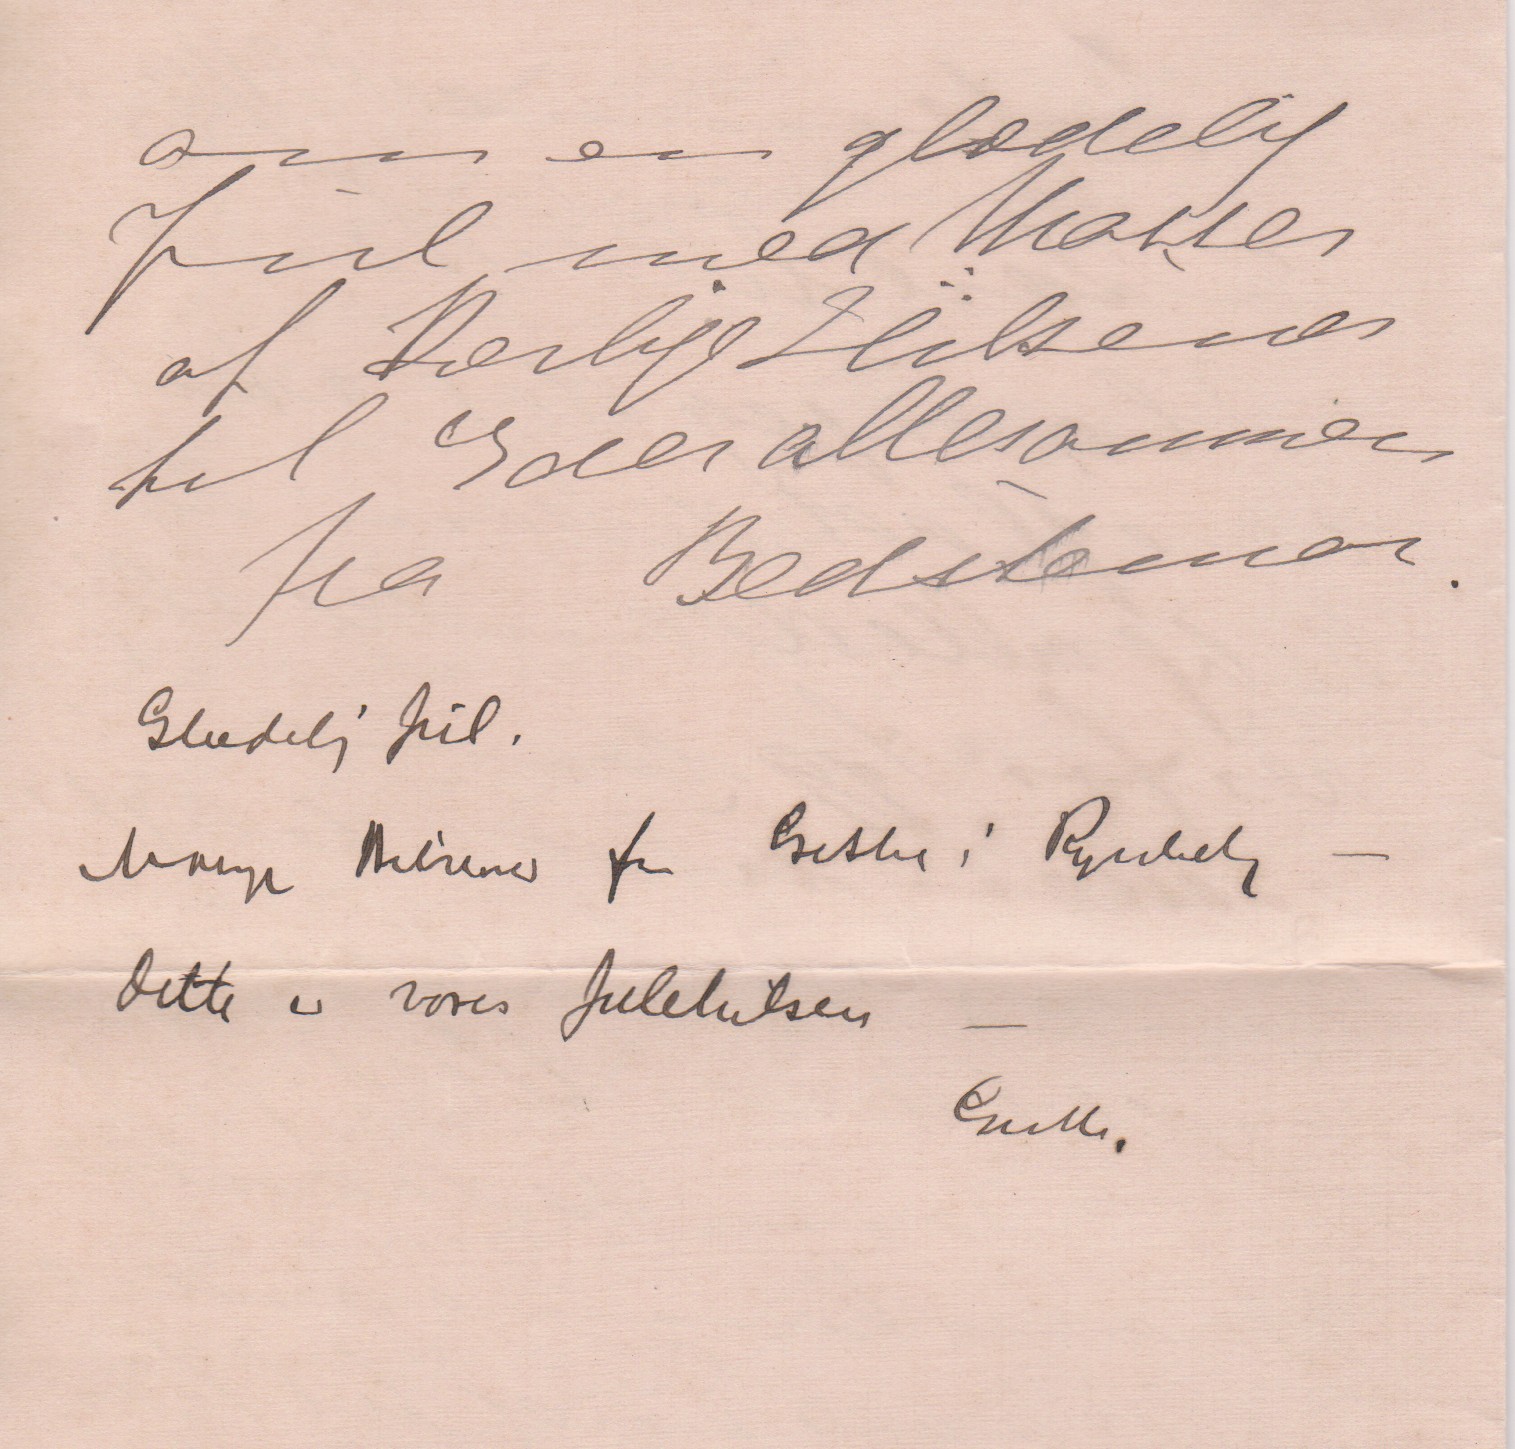 om en glædelig
Jul med Masser
af Kærlige Hilsener
til Eder allesammen
fra Bedstemor.
Glædelig Jul.
Mange Hilsener fra Grethe i Rynkeby —
Dette er vores Julehilsen —
Grethe.